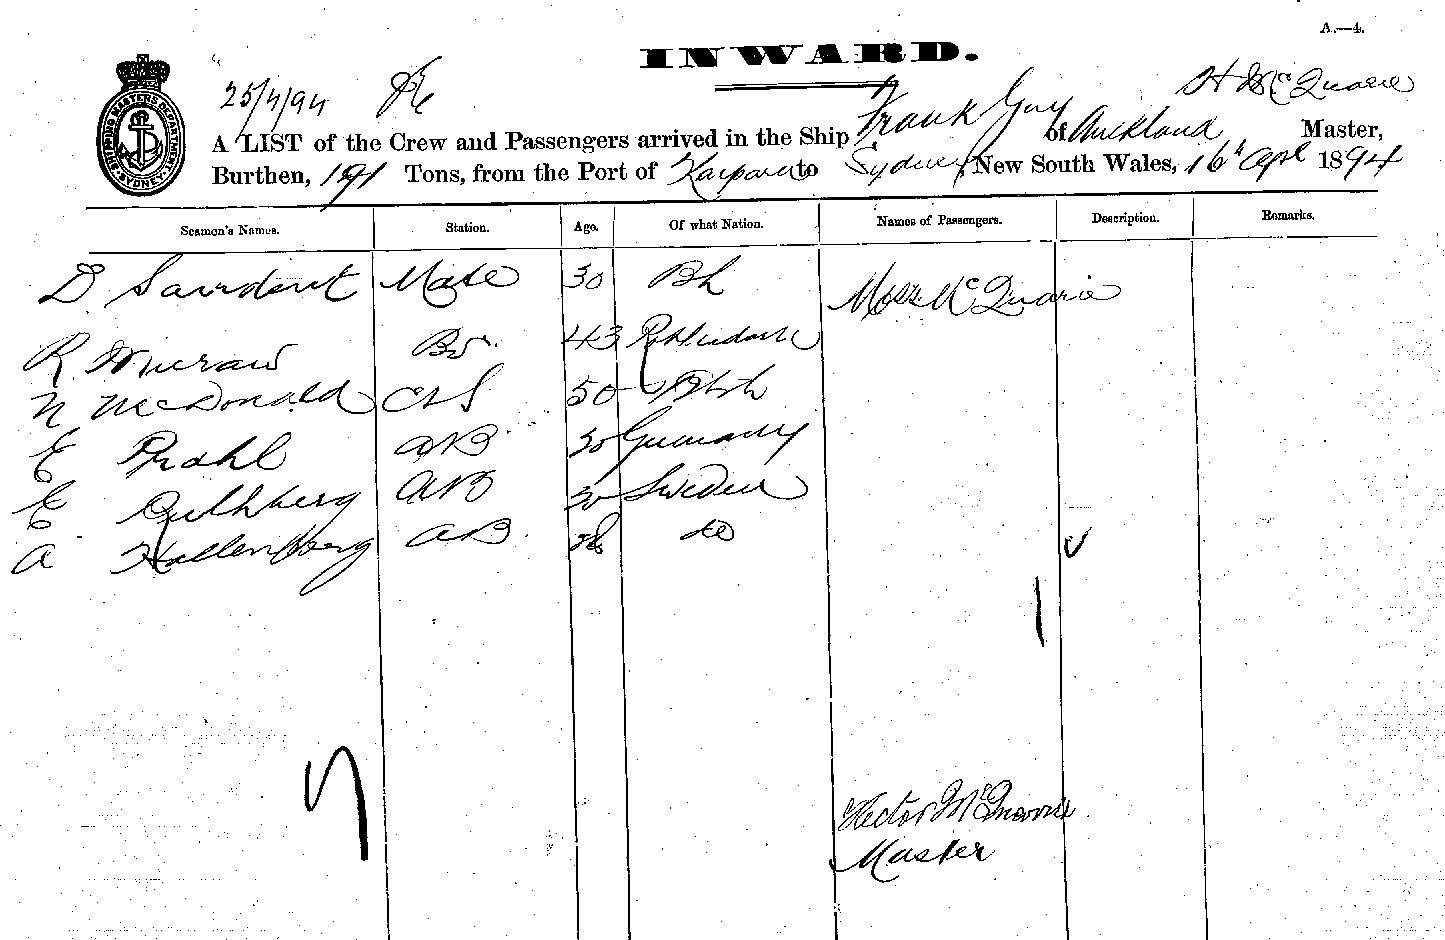 A.—4.
INWARD.
25/4/94
H McQuarie
A LIST of the Crew and Passengers arrived in the Ship Frank Guy of Auckland Master,
Burthen, 191 Tons, from the Port of Kaipara to Sydney, New South Wales, 16th Apl 1894
SHIPPING MASTERS DEPARTMENT SYDNEY
Seamen's Names. Station. Age. Of what Nation. Names of Passengers. Description. Remarks.
D Mate 30 Bh Miss McQuarie
R 43
N McDonald 50
E Prahl AB 30 Germany
E AB 30 Sweden
A Hallenberg AB 28 do
Hector McQuarrie
Master